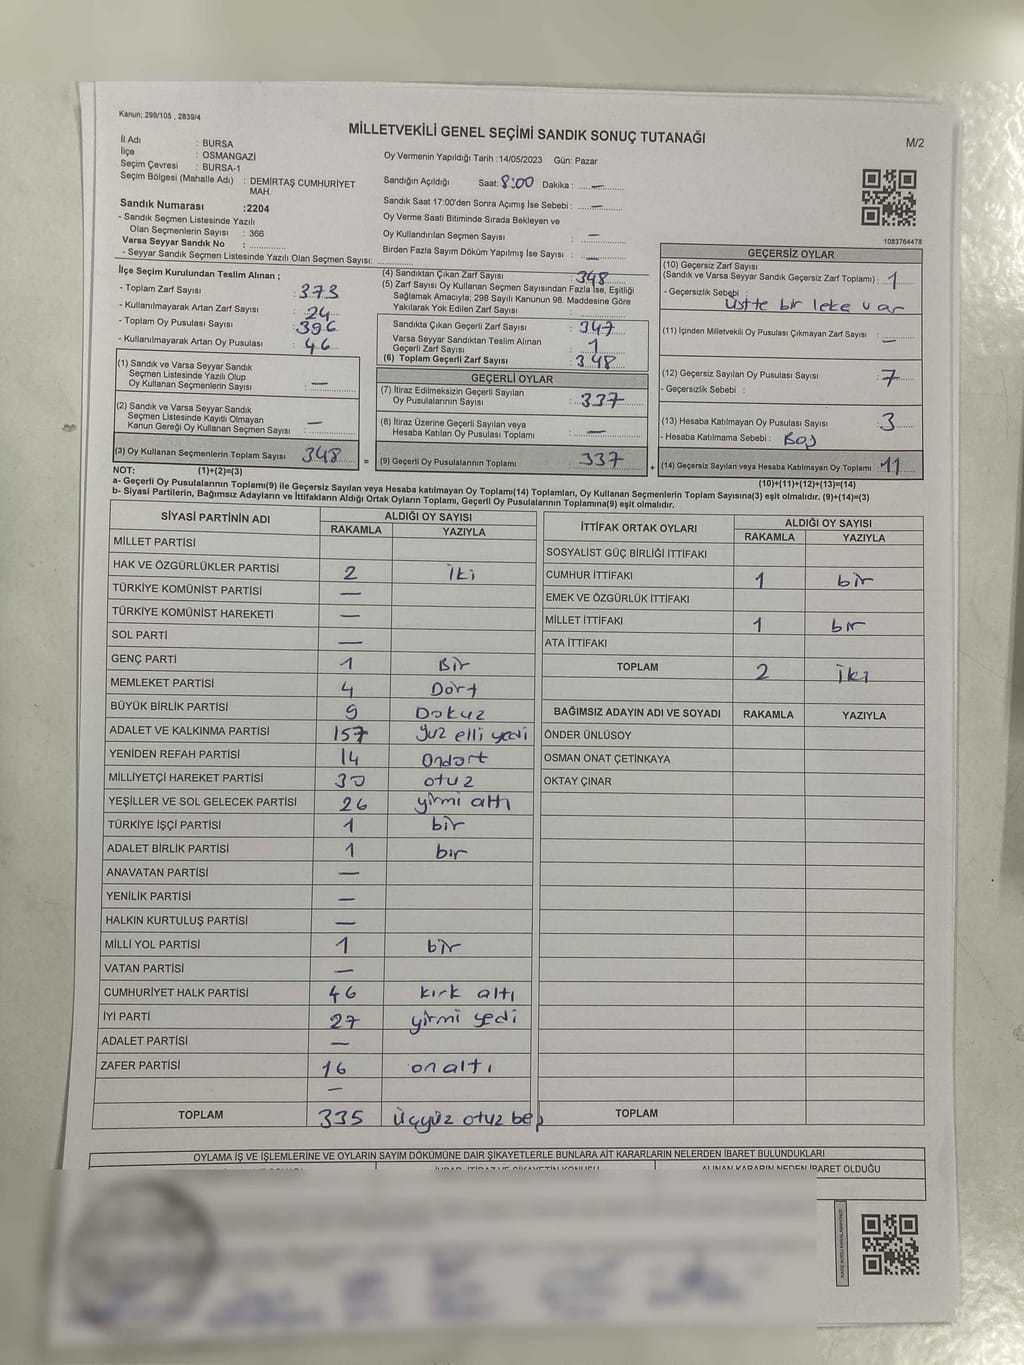 Kanun; 298/105 , 2839/4
MİLLETVEKİLİ GENEL SEÇİMİ SANDIK SONUÇ TUTANAĞI
M/2
İl Adı : BURSA
İlçe : OSMANGAZİ
Seçim Çevresi : BURSA-1
Seçim Bölgesi (Mahalle Adı) : DEMİRTAŞ CUMHURİYET MAH.
Sandık Numarası :2204
- Sandık Seçmen Listesinde Yazılı
Olan Seçmenlerin Sayısı : 366
Varsa Seyyar Sandık No :
- Seyyar Sandık Seçmen Listesinde Yazılı Olan Seçmen Sayısı:
Oy Vermenin Yapıldığı Tarih :14/05/2023 Gün: Pazar
Sandığın Açıldığı Saat: 8:00 Dakika : —
Sandık Saat 17:00'den Sonra Açımış İse Sebebi : —
Oy Verme Saati Bitiminde Sırada Bekleyen ve
Oy Kullandırılan Seçmen Sayısı : —
Birden Fazla Sayım Döküm Yapılmış İse Sayısı : —
1083764478
İlçe Seçim Kurulundan Teslim Alınan ;
- Toplam Zarf Sayısı : 373
- Kullanılmayarak Artan Zarf Sayısı : 24
- Toplam Oy Pusulası Sayısı : 396
- Kullanılmayarak Artan Oy Pusulası : 46
(1) Sandık ve Varsa Seyyar Sandık
Seçmen Listesinde Yazılı Olup
Oy Kullanan Seçmenlerin Sayısı : —
(2) Sandık ve Varsa Seyyar Sandık
Seçmen Listesinde Kayıtlı Olmayan
Kanun Gereği Oy Kullanan Seçmen Sayısı : —
(3) Oy Kullanan Seçmenlerin Toplam Sayısı 348
(4) Sandıktan Çıkan Zarf Sayısı : 348
(5) Zarf Sayısı Oy Kullanan Seçmen Sayısından Fazla İse, Eşitliği
Sağlamak Amacıyla; 298 Sayılı Kanunun 98. Maddesine Göre
Yakılarak Yok Edilen Zarf Sayısı :
Sandıkta Çıkan Geçerli Zarf Sayısı : 347
Varsa Seyyar Sandıktan Teslim Alınan
Geçerli Zarf Sayısı : 1
(6) Toplam Geçerli Zarf Sayısı : 348
GEÇERLİ OYLAR
(7) İtiraz Edilmeksizin Geçerli Sayılan
Oy Pusulalarının Sayısı : 337
(8) İtiraz Üzerine Geçerli Sayılan veya
Hesaba Katılan Oy Pusulası Toplamı : —
= (9) Geçerli Oy Pusulalarının Toplamı : 337
GEÇERSİZ OYLAR
(10) Geçersiz Zarf Sayısı
(Sandık ve Varsa Seyyar Sandık Geçersiz Zarf Toplamı) : 1
- Geçersizlik Sebebi :
üstte bir leke var
(11) İçinden Milletvekili Oy Pusulası Çıkmayan Zarf Sayısı : —
(12) Geçersiz Sayılan Oy Pusulası Sayısı : 7
- Geçersizlik Sebebi :
(13) Hesaba Katılmayan Oy Pusulası Sayısı : 3
- Hesaba Katılmama Sebebi : Boş
+ (14) Geçersiz Sayılan veya Hesaba Katılmayan Oy Toplamı 11
NOT: (1)+(2)=(3)
(10)+(11)+(12)+(13)=(14)
a- Geçerli Oy Pusulalarının Toplamı(9) ile Geçersiz Sayılan veya Hesaba katılmayan Oy Toplamı(14) Toplamları, Oy Kullanan Seçmenlerin Toplam Sayısına(3) eşit olmalıdır. (9)+(14)=(3)
b- Siyasi Partilerin, Bağımsız Adayların ve İttifakların Aldığı Ortak Oyların Toplamı, Geçerli Oy Pusulalarının Toplamına(9) eşit olmalıdır.
SİYASİ PARTİNİN ADI ALDIĞI OY SAYISI
RAKAMLA YAZIYLA
MİLLET PARTİSİ
HAK VE ÖZGÜRLÜKLER PARTİSİ 2 İki
TÜRKİYE KOMÜNİST PARTİSİ —
TÜRKİYE KOMÜNİST HAREKETİ —
SOL PARTİ —
GENÇ PARTİ 1 Bir
MEMLEKET PARTİSİ 4 Dört
BÜYÜK BİRLİK PARTİSİ 9 Dokuz
ADALET VE KALKINMA PARTİSİ 157 yüz elli yedi
YENİDEN REFAH PARTİSİ 14 ondört
MİLLİYETÇİ HAREKET PARTİSİ 30 otuz
YEŞİLLER VE SOL GELECEK PARTİSİ 26 yirmi altı
TÜRKİYE İŞÇİ PARTİSİ 1 bir
ADALET BİRLİK PARTİSİ 1 bir
ANAVATAN PARTİSİ —
YENİLİK PARTİSİ —
HALKIN KURTULUŞ PARTİSİ —
MİLLİ YOL PARTİSİ 1 bir
VATAN PARTİSİ —
CUMHURİYET HALK PARTİSİ 46 kırk altı
İYİ PARTİ 27 yirmi yedi
ADALET PARTİSİ —
ZAFER PARTİSİ 16 on altı
—
TOPLAM 335 üçyüz otuz beş
İTTİFAK ORTAK OYLARI ALDIĞI OY SAYISI
RAKAMLA YAZIYLA
SOSYALİST GÜÇ BİRLİĞİ İTTİFAKI
CUMHUR İTTİFAKI 1 bir
EMEK VE ÖZGÜRLÜK İTTİFAKI
MİLLET İTTİFAKI 1 bir
ATA İTTİFAKI
TOPLAM 2 iki
BAĞIMSIZ ADAYIN ADI VE SOYADI RAKAMLA YAZIYLA
ÖNDER ÜNLÜSOY
OSMAN ONAT ÇETİNKAYA
OKTAY ÇINAR
TOPLAM
OYLAMA İŞ VE İŞLEMLERİNE VE OYLARIN SAYIM DÖKÜMÜNE DAİR ŞİKAYETLERLE BUNLARA AİT KARARLARIN NELERDEN İBARET BULUNDUKLARI
ALINAN KARARIN NEDEN İBARET OLDUĞU